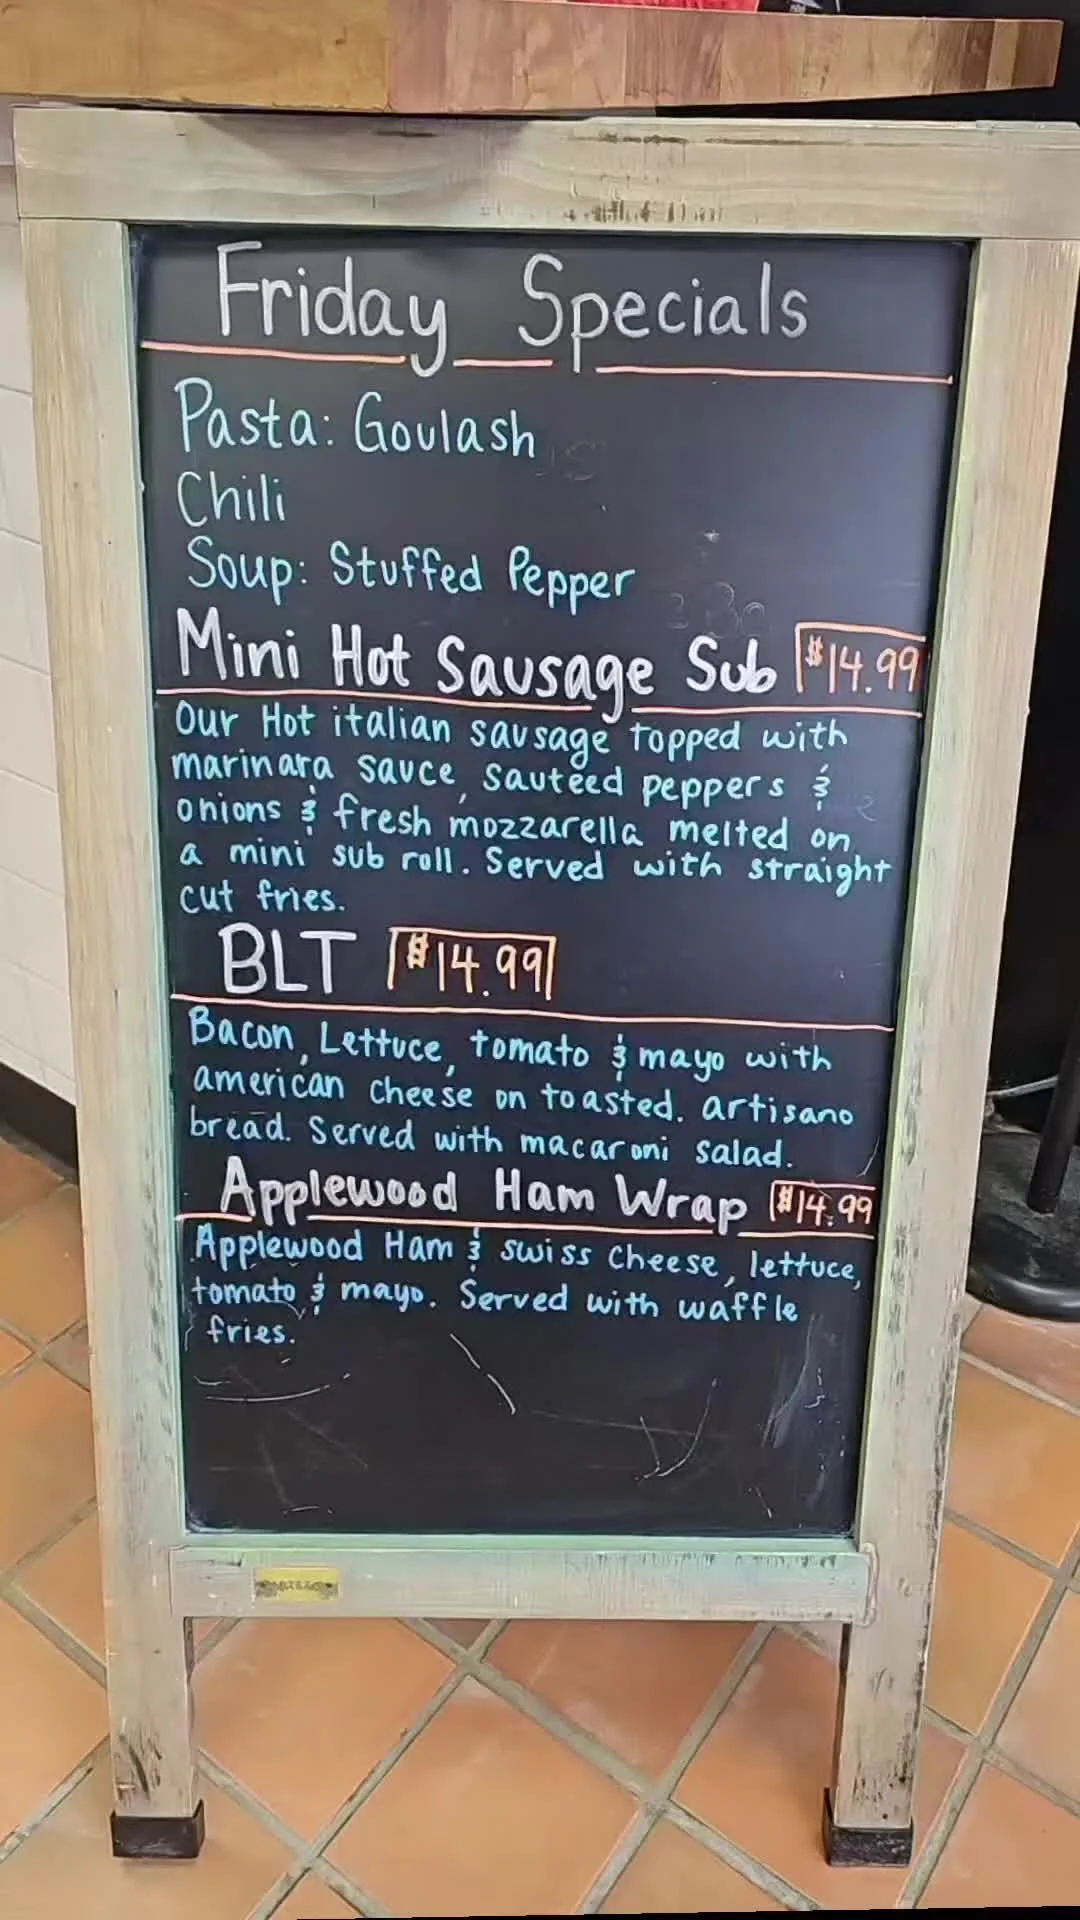 Friday Specials
Pasta: Goulash
Chili
Soup: Stuffed Pepper
Mini Hot Sausage Sub $14.99
Our Hot italian sausage topped with
marinara sauce, sauteed peppers &
onions & fresh mozzarella melted on
a mini sub roll. Served with straight
cut fries.
BLT $14.99
Bacon, Lettuce, tomato & mayo with
american cheese on toasted. artisano
bread. Served with macaroni salad.
Applewood Ham Wrap $14.99
Applewood Ham & swiss cheese, lettuce,
tomato & mayo. Served with waffle
fries.